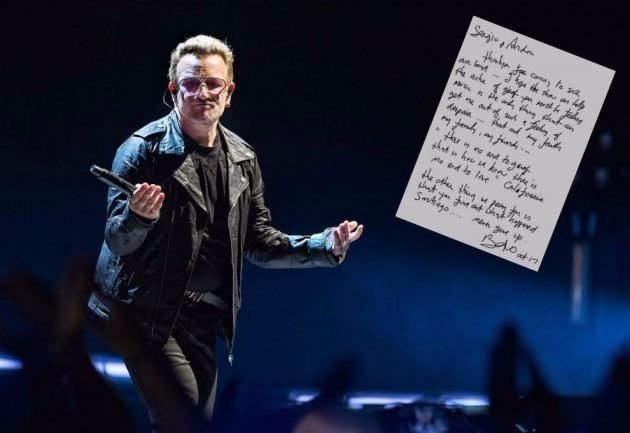 Sergio & Andrea
... thankyou for coming to see
our band ... I hope the show can help
the ache of grief you must be feeling
music is the only thing that can
get me out of such a feeling of
despair ... that and my faith
my family, my friends ...
" there is no end to grief
that is how we know there is
no end to love " California
the other thing we pray for is
that you find out what happened
Santiago .... never give up.
Bono oct 17